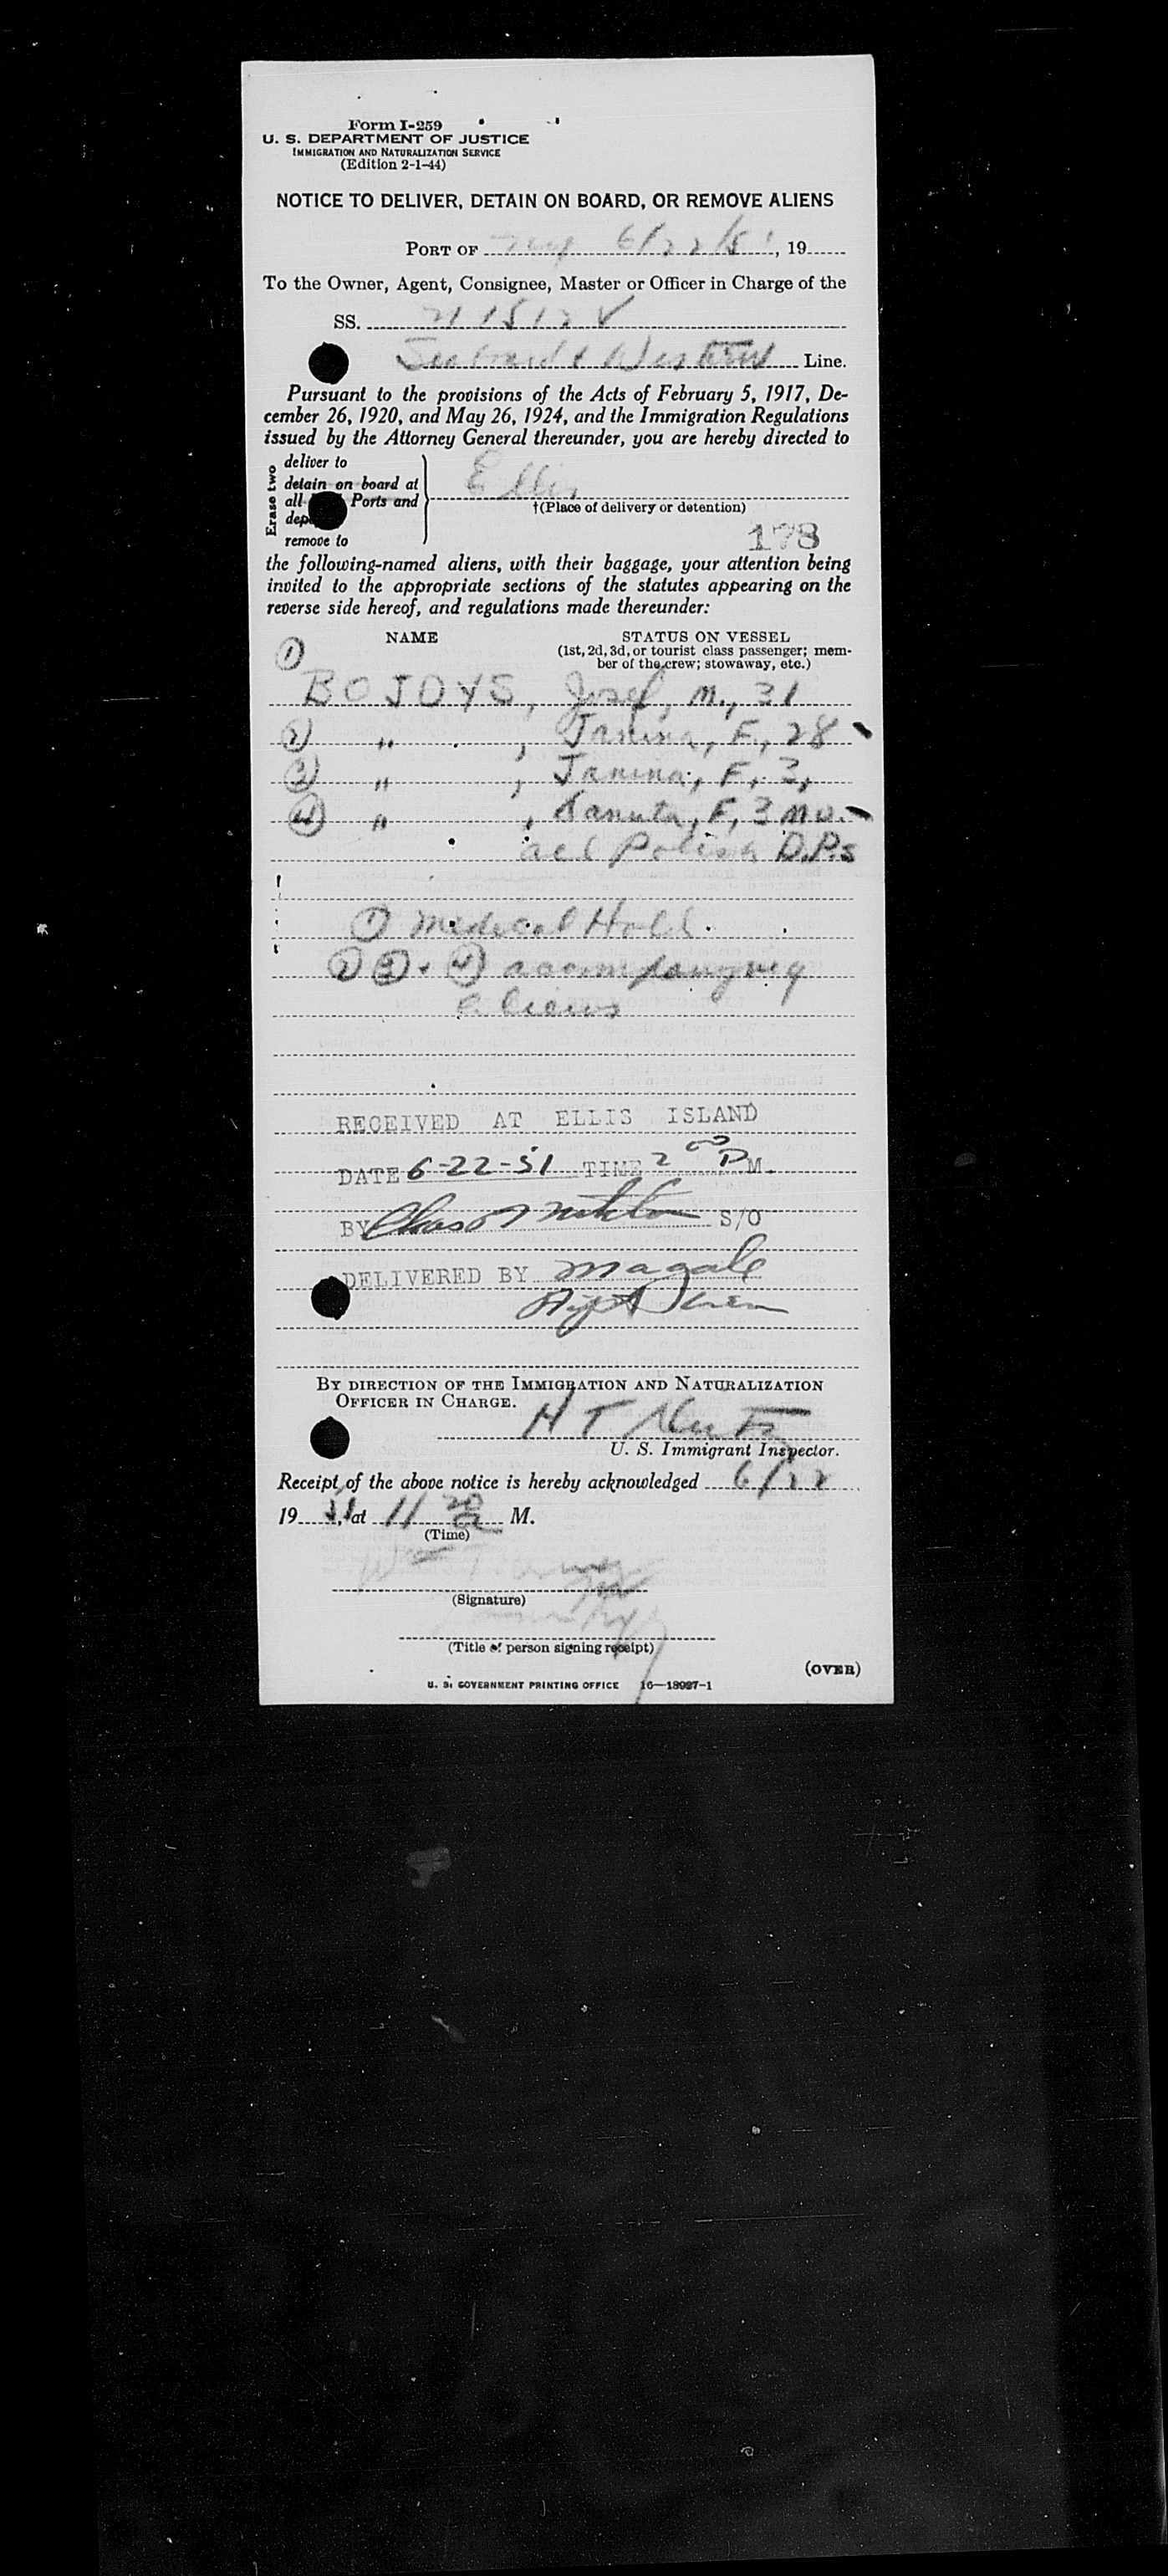 Form I-259
U. S. DEPARTMENT OF JUSTICE
IMMIGRATION AND NATURALIZATION SERVICE
(Edition 2-1-44)
NOTICE TO DELIVER, DETAIN ON BOARD, OR REMOVE ALIENS
PORT OF 6/22/51, 19
To the Owner, Agent, Consignee, Master or Officer in Charge of the
SS.
Seaboard & Western Line.
Pursuant to the provisions of the Acts of February 5, 1917, De-
cember 26, 1920, and May 26, 1924, and the Immigration Regulations
issued by the Attorney General thereunder, you are hereby directed to
Erase two
deliver to
detain on board at
all Ports and
remove to
Ellis
†(Place of delivery or detention)
178
the following-named aliens, with their baggage, your attention being
invited to the appropriate sections of the statutes appearing on the
reverse side hereof, and regulations made thereunder:
NAME STATUS ON VESSEL
(1st, 2d, 3d, or tourist class passenger; mem-
ber of the crew; stowaway, etc.)
① BOJDYS, Josef, M., 31
② " , Janina, F., 28
③ " , Janina, F, 3,
④ " , Danuta, F, 3 mo.
all Polish D.P.s
① Medical Hold.
② ③ + ④ accompanying
aliens
RECEIVED AT ELLIS ISLAND
DATE 6-22-51 TIME 2 00 P M.
BY Chas S/O
DELIVERED BY Magale
BY DIRECTION OF THE IMMIGRATION AND NATURALIZATION
OFFICER IN CHARGE.
H T
U. S. Immigrant Inspector.
Receipt of the above notice is hereby acknowledged 6/22
19 51, at 11 M.
(Time)
(Signature)
(Title of person signing receipt)
(OVER)
U. S. GOVERNMENT PRINTING OFFICE 16—18927-1